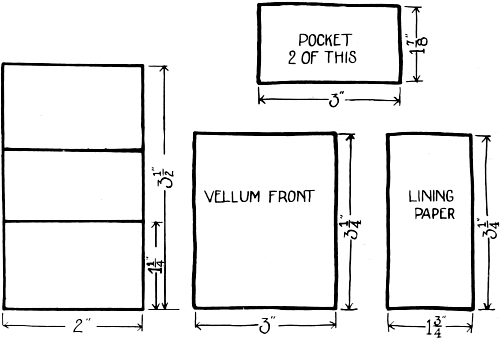 POCKET
2 OF THIS
1 7/8"
3"
3 1/2"
1 1/4"
2"
VELLUM FRONT
3 1/4"
3"
LINING
PAPER
3 1/4"
1 3/4"